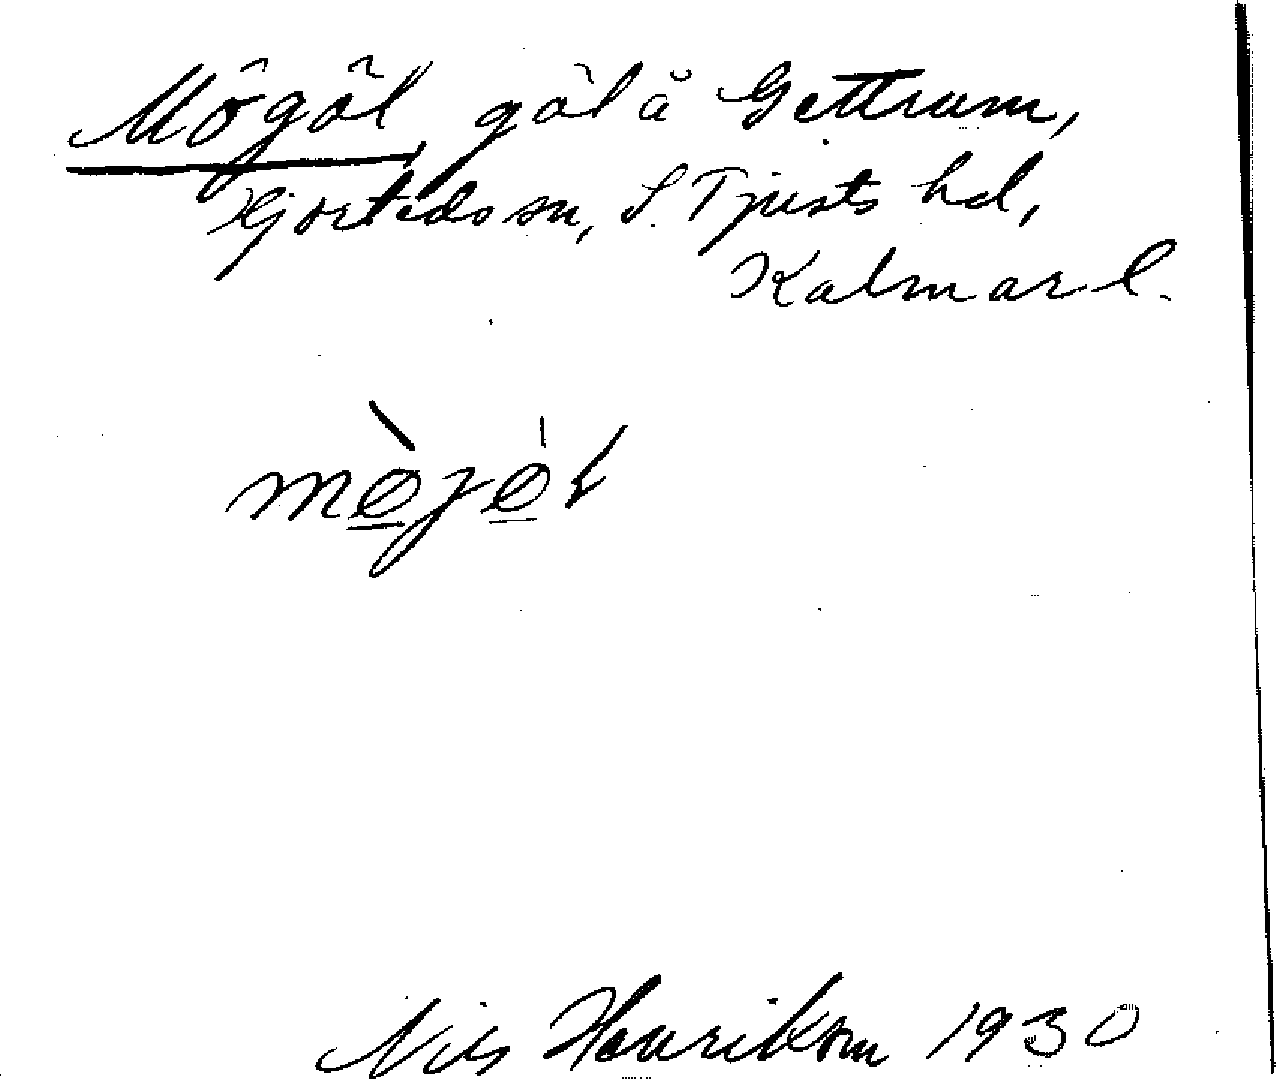 Mögöl, göl å Gettrum,
Hjorteds sn, S. Tjusts hd,
Kalmar l.
mø̠̀jø̠l
Nils Henrikson 1930